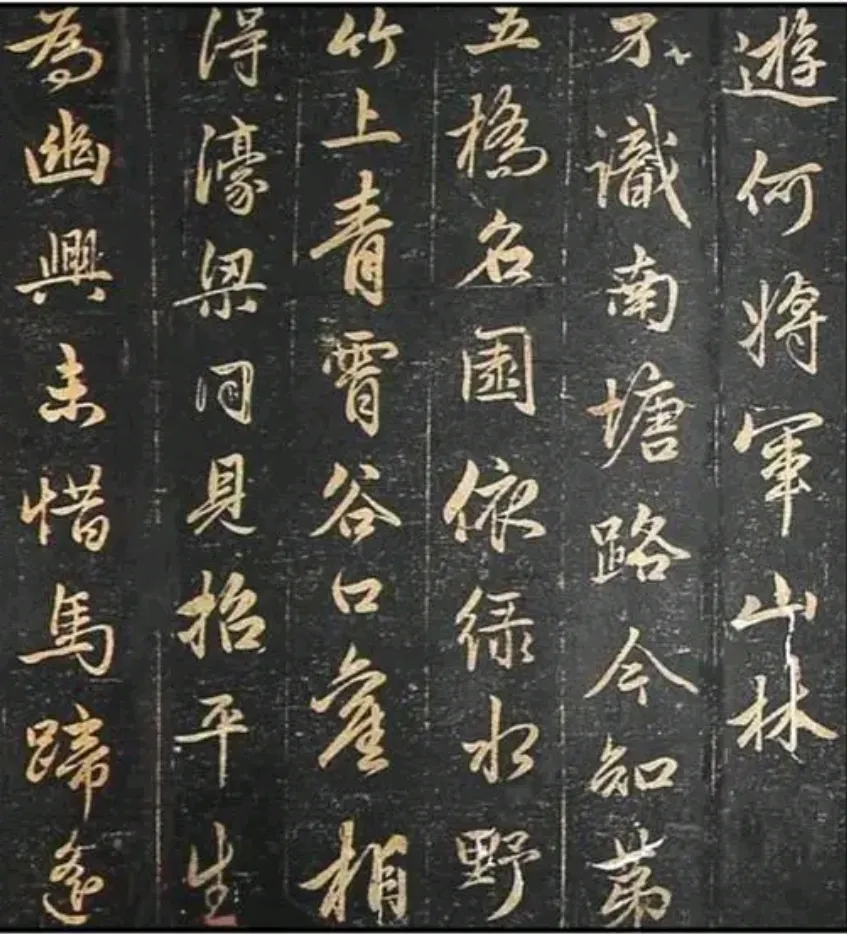 遊何將軍山林
不識南塘路今知第
五橋名園依綠水野
竹上青霄谷口舊相
得濠梁同見招平生
為幽興未惜馬蹄遙